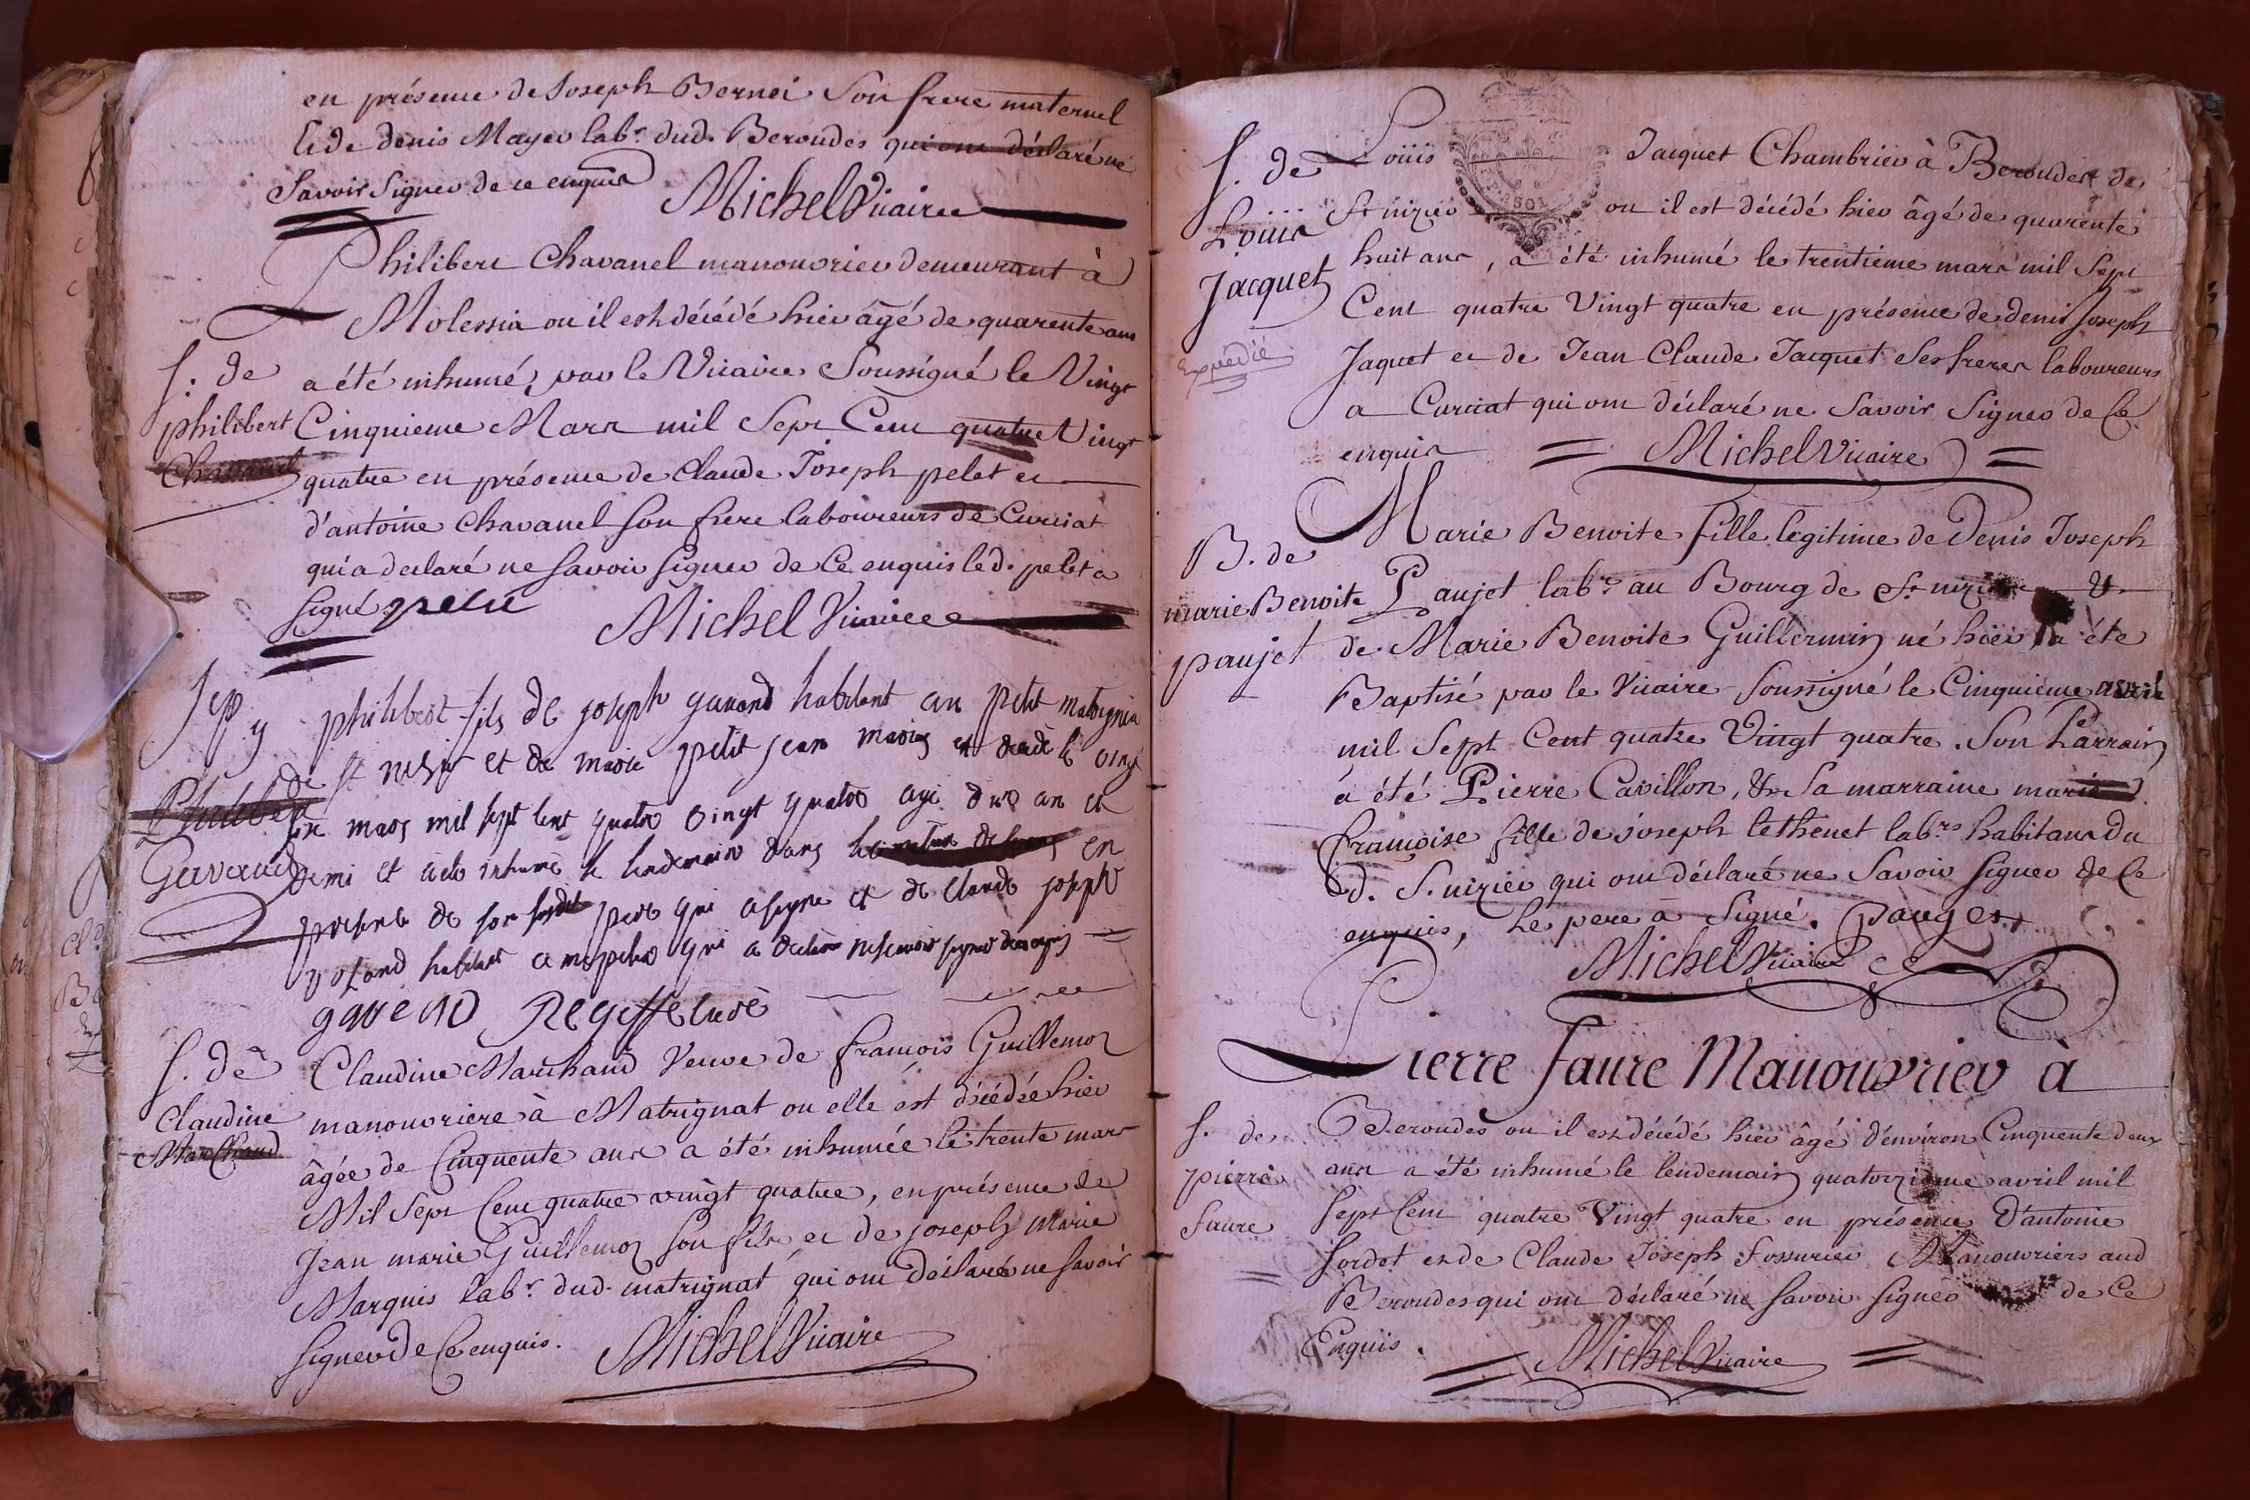 en présence de Joseph Bernei Son frere maternel
de denis Mayer labr. dud. Beroudes qui ont déclaré ne
Savoir Signer de ce enquis
Michel Vicaire
Philibert Chavanel manouvrier demeurant à
Molessia ou il est décédé hier âgé de quarente ans
S. de
a été inhumé, par le Vicaire Soussigné le Vingt
philibert
Cinquieme Mars mil Sept Cent quatre Vingt
Chavanel
quatre en présence de Claude Joseph pelet et
d'antoine Chavanel son frere laboureurs de Curciat
qui a declaré ne savoir signer de Ce enquis led. pelet a
signé pelet
Michel Vicaire
Sep
philibert fils de joseph gavand habitant au petit matrignia
de St nizier et de marie petit jean mariés est decede le vingt
Philibert
mars mil sept cent quatre vingt quatre agé d'un an et
Gaverand
demi et a ete inhumé le lendemain dans en
presence de son susdit pere qui a signe et de claude joseph
habitant a qui a declare ne scavoir signer
gaveND
S. de
Claudine Marchand Veuve de francois Guillemot
Claudine
manouvriere à Matrignat ou elle est décédée hier
Marchand
âgée de Cinquente ans a été inhumée le trente mars
Mil Sept Cent quatre vingt quatre, en présence de
Jean marie Guillemot son fils et de joseph Marie
Marquis labr. dud. matrignat qui ont déclaré ne savoir
signer de Ce enquis.
Michel Vicaire
S. de
Loüis Jacquet Chambrier à Beroudes de
Loüis
St nizier ou il est décédé hier âgé de quarente
huit ans, a été inhumé le trentieme mars mil Sept
Jacquet
Cent quatre Vingt quatre en présence de denis Joseph
Expedié
Jaquet et de Jean Claude Jacquet Ses freres laboureurs
a Curciat qui ont déclaré ne Savoir Signer de Ce
enquis
Michel Vicaire
Marie Benoite fille legitime de Denis Joseph
B. de
marie Benoite
Paujet labr. au Bourg de St nizier &
paujet
de Marie Benoite Guillermin né hier, a éte
Baptisé par le Vicaire Soussigné le Cinquieme avril
mil Sept Cent quatre Vingt quatre. Son Parrain
a été Pierre Cavillon, & la marraine marie
françoise fille de joseph lethenet labrs. habitans du
d. S. nizier qui ont déclaré ne Savoir signer de Ce
enquis, le pere a Signé. paujet
Michel Vicaire
Pierre faure Manouvrier à
S. de
Beroudes ou il est décédé hier âgé d'environ Cinquente deux
pierre
ans a été inhumé le lendemain quatorzieme avril mil
faure
Sept Cent quatre Vingt quatre en présence D'antoine
sordet et de Claude Joseph fossurier Manouvriers aud
Beroudes qui ont déclaré ne savoir signer de Ce
Enquis.
Michel Vicaire